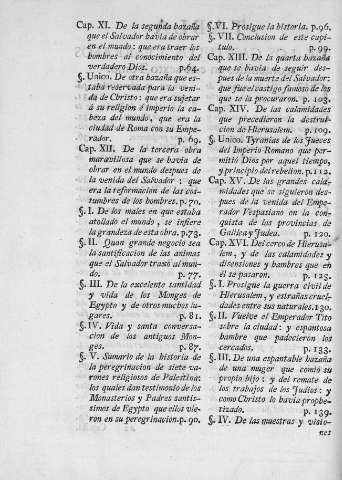 Cap. XI. De la segunda hazaña
que el Salvador havia de obrar
en el mundo: que era traer los
hombres al conocimiento del
verdadero Dios. p.64.
§. Unico. De otra hazaña que es-
taba reservada para la veni-
da de Christo: que era sujetar
à su religion è imperio la ca-
beza del mundo, que era la
ciudad de Roma con su Empe-
rador. p. 69.
Cap. XII. De la tercera obra
maravillosa que se havia de
obrar en el mundo despues de
la venida del Salvador; que
era la reformacion de las cos-
tumbres de los hombres. p.70.
§. I. De los males en que estaba
atollado el mundo, se infiere
la grandeza de esta obra. p.73.
§. II. Quan grande negocio sea
la santificacion de las animas
que el Salvador traxo al mun-
do. p. 77.
§. III. De la excelente santidad
y vida de los Monges de
Egypto y de otros muchos lu-
gares. p. 81.
§. IV. Vida y santa conversa-
cion de los antiguos Mon-
ges. p. 87.
§. V. Sumario de la historia de
la peregrinacion de siete va-
rones religiosos de Palestina:
los quales dan testimonio de los
Monasterios y Padres santis-
simos de Egypto que ellos vie-
ron en su peregrinacion. p. 90.
§. VI. Prosigue la historia. p.96.
§. VII. Conclusion de este capi-
tulo. p. 99.
Cap. XIII. De la quarta hazaña
que se havia de seguir des-
pues de la muerte del Salvador:
que fue el castigo famoso de los
que se la procuraron. p. 103.
Cap. XIV. De las calamidades
que precedieron la destrui-
cion de Hierusalem. p. 109.
§. Unico. Tyranias de los Jueces
del Imperio Romano que per-
mitió Dios por aquel tiempo,
y principio del rebelion. p.112.
Cap. XV. De las grandes cala-
midades que se siguieron des-
pues de la venida del Empe-
rador Vespasiano en la con-
quista de las provincias de
Galilea y Judea. p. 120.
Cap. XVI. Del cerco de Hierusa-
lem, y de las calamidades y
disensiones y hambres que en
él se pasaron. p. 125.
§. I. Prosigue la guerra civil de
Hierusalem, y estrañas cruel-
dades entre sus naturales. 130.
§. II. Vuelve el Emperador Tito
sobre la ciudad: y espantosa
hambre que padecieron los
cercados. p. 133.
§. III. De una espantable hazaña
de una muger que comió su
propio hijo: y del remate de
los trabajos de los Judios: y
como Christo lo havia prophe-
tizado. p. 139.
§. IV. De las muestras y visio-
nes